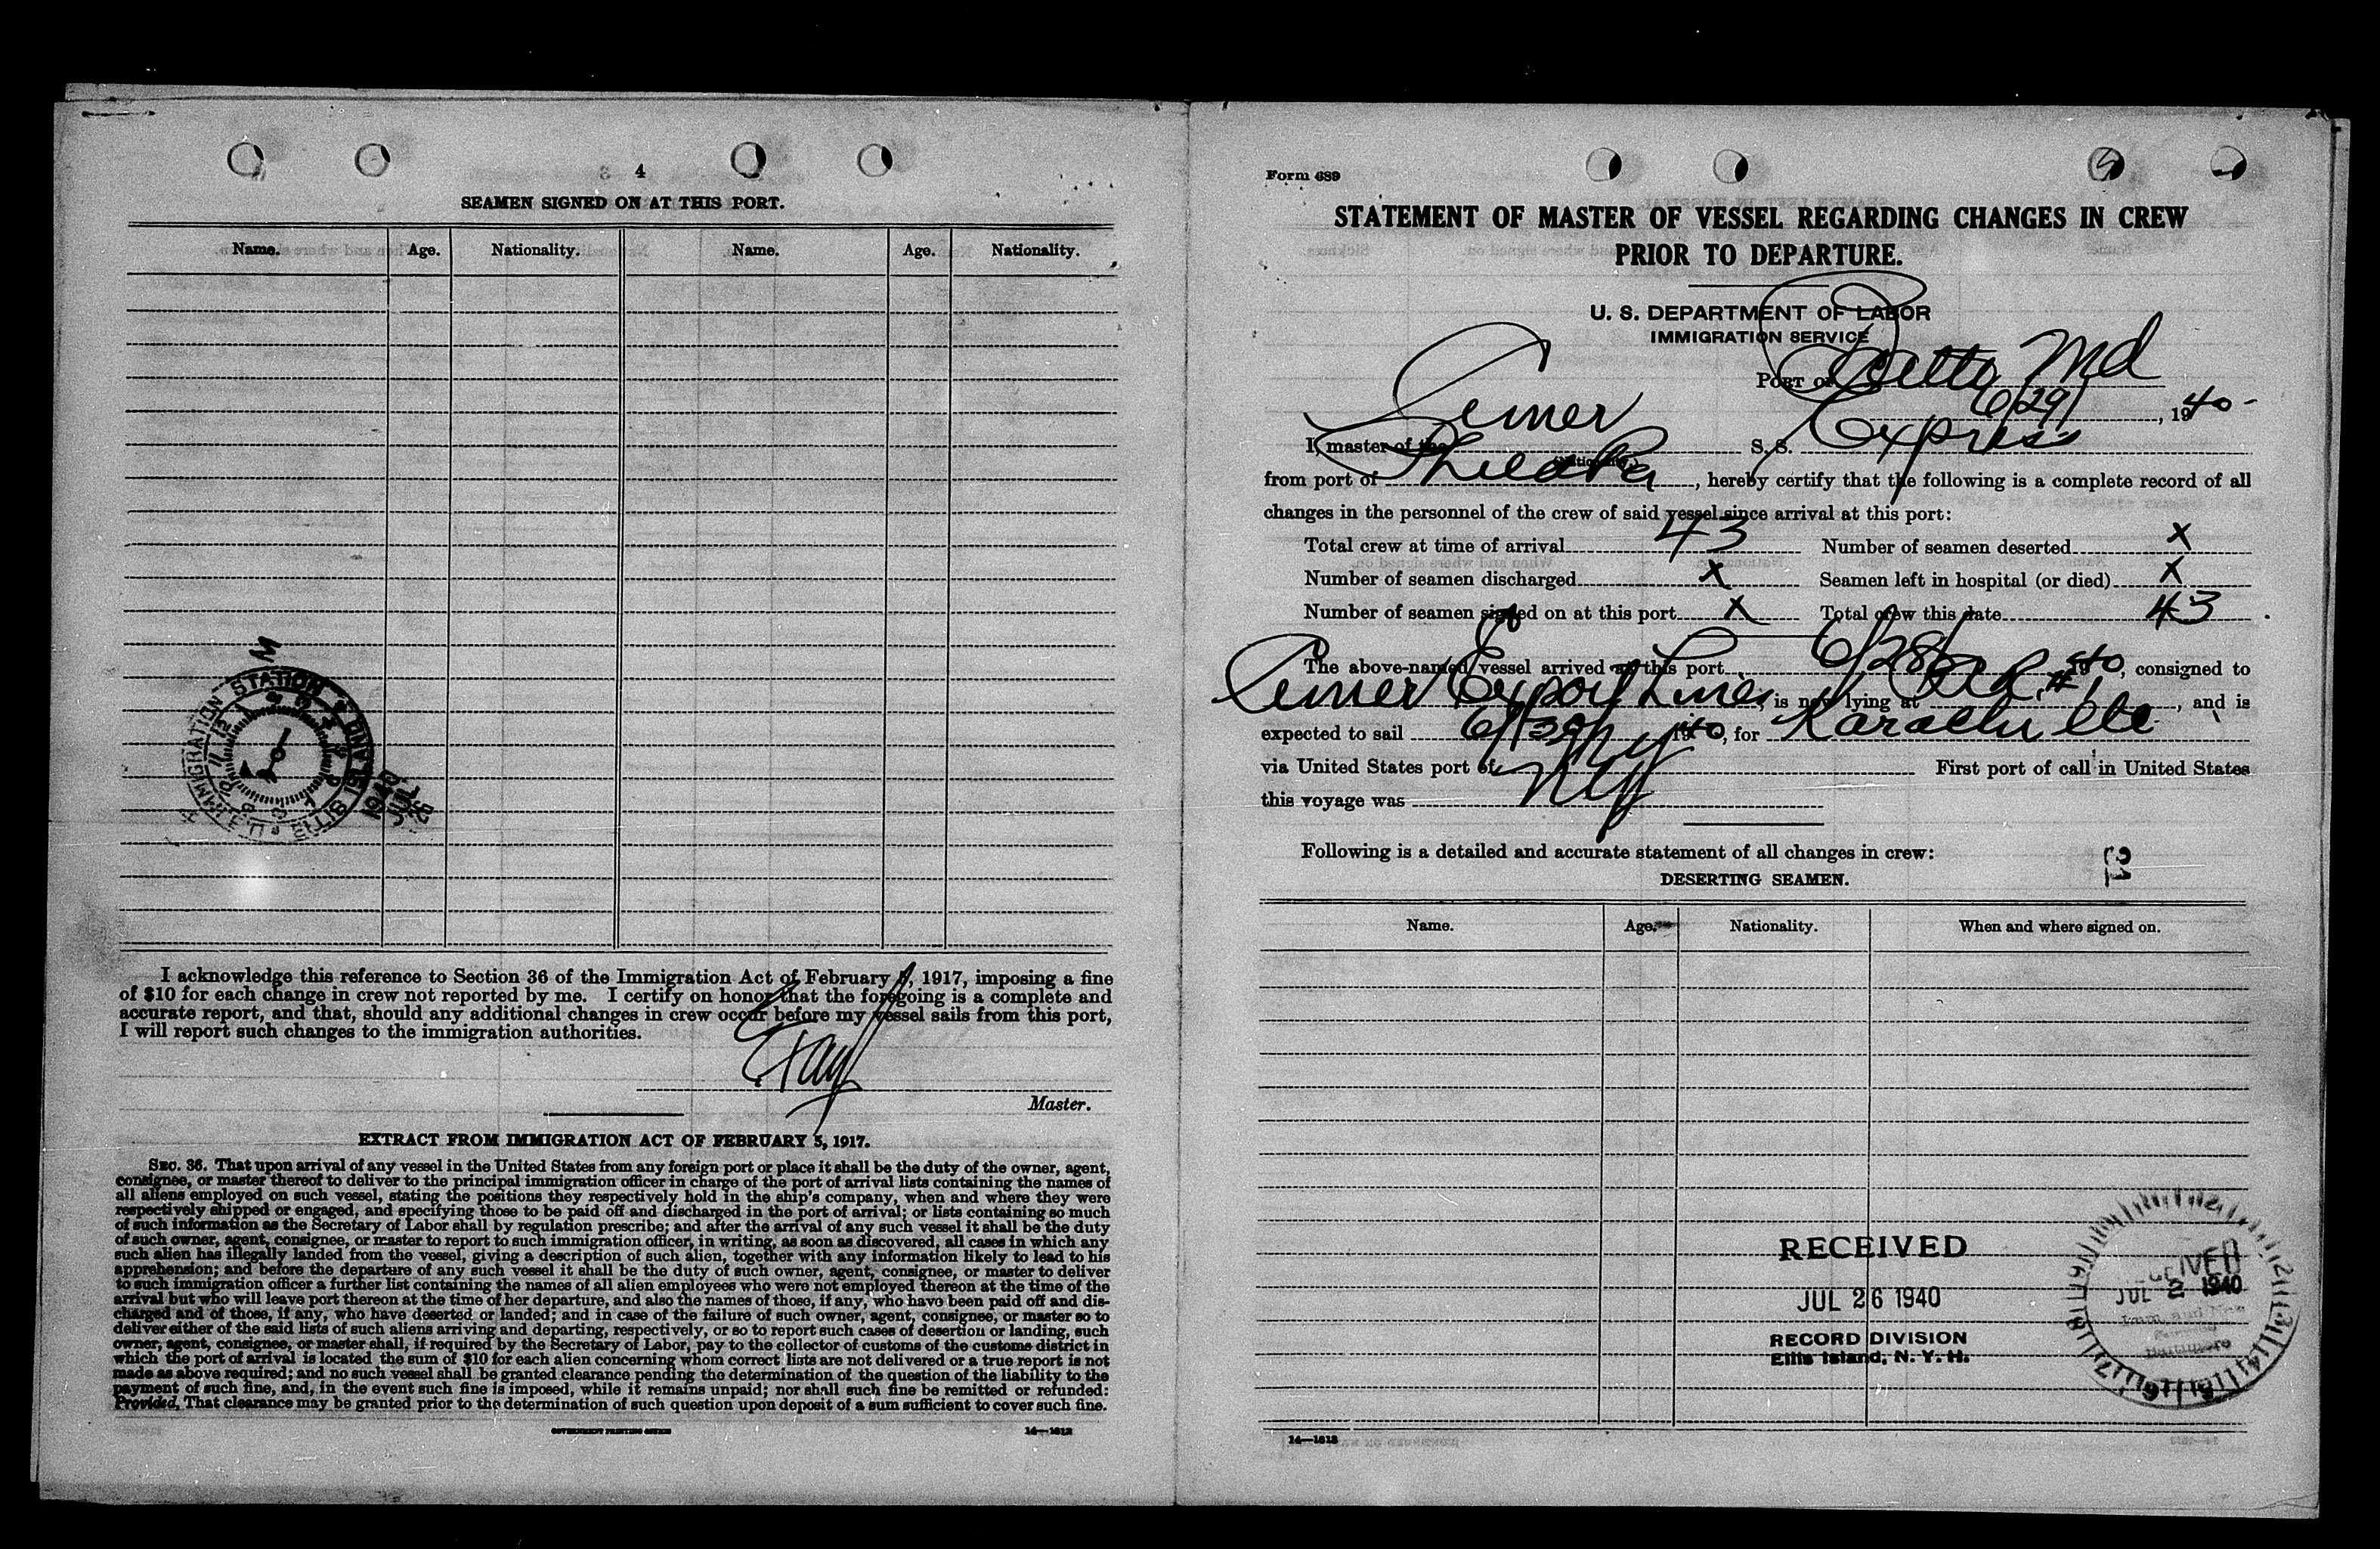 4
SEAMEN SIGNED ON AT THIS PORT.
Name. Age. Nationality. Name. Age. Nationality.
U.S. IMMIGRATION STATION ELLIS ISLAND
1940 JUL 26
I acknowledge this reference to Section 36 of the Immigration Act of February 5, 1917, imposing a fine
of $10 for each change in crew not reported by me. I certify on honor that the foregoing is a complete and
accurate report, and that, should any additional changes in crew occur before my vessel sails from this port,
I will report such changes to the immigration authorities.
Master.
EXTRACT FROM IMMIGRATION ACT OF FEBRUARY 5, 1917.
SEC. 36. That upon arrival of any vessel in the United States from any foreign port or place it shall be the duty of the owner, agent,
consignee, or master thereof to deliver to the principal immigration officer in charge of the port of arrival lists containing the names of
all aliens employed on such vessel, stating the positions they respectively hold in the ship's company, when and where they were
respectively shipped or engaged, and specifying those to be paid off and discharged in the port of arrival; or lists containing so much
of such information as the Secretary of Labor shall by regulation prescribe; and after the arrival of any such vessel it shall be the duty
of such owner, agent, consignee, or master to report to such immigration officer, in writing, as soon as discovered, all cases in which any
such alien has illegally landed from the vessel, giving a description of such alien, together with any information likely to lead to his
apprehension; and before the departure of any such vessel it shall be the duty of such owner, agent, consignee, or master to deliver
to such immigration officer a further list containing the names of all alien employees who were not employed thereon at the time of the
arrival but who will leave port thereon at the time of her departure, and also the names of those, if any, who have been paid off and dis-
charged and of those, if any, who have deserted or landed; and in case of the failure of such owner, agent, consignee, or master so to
deliver either of the said lists of such aliens arriving and departing, respectively, or so to report such cases of desertion or landing, such
owner, agent, consignee, or master shall, if required by the Secretary of Labor, pay to the collector of customs of the customs district in
which the port of arrival is located the sum of $10 for each alien concerning whom correct lists are not delivered or a true report is not
made as above required; and no such vessel shall be granted clearance pending the determination of the question of the liability to the
payment of such fine, and, in the event such fine is imposed, while it remains unpaid; nor shall such fine be remitted or refunded:
Provided, That clearance may be granted prior to the determination of such question upon deposit of a sum sufficient to cover such fine.
GOVERNMENT PRINTING OFFICE 14—1612
Form 689
STATEMENT OF MASTER OF VESSEL REGARDING CHANGES IN CREW
PRIOR TO DEPARTURE.
U. S. DEPARTMENT OF LABOR
IMMIGRATION SERVICE
PORT OF Balto Md
6/29/, 1940
I, master of the Amer S. S. Express
(Nationality)
from port of Philada Pa, hereby certify that the following is a complete record of all
changes in the personnel of the crew of said vessel since arrival at this port:
Total crew at time of arrival 43 Number of seamen deserted X
Number of seamen discharged X Seamen left in hospital (or died) X
Number of seamen signed on at this port X Total crew this date 43
The above-named vessel arrived at this port 6/28/ 1940, consigned to
Amer Export Lines, is now lying at , and is
expected to sail 6/30/ 1940, for Karachi etc
via United States port of NY First port of call in United States
this voyage was NY
Following is a detailed and accurate statement of all changes in crew:
31
DESERTING SEAMEN.
Name. Age. Nationality. When and where signed on.
RECEIVED
JUL 26 1940
RECORD DIVISION
Ellis Island, N. Y. H.
RECEIVED
JUL 2 1940
Baltimore
14—1612